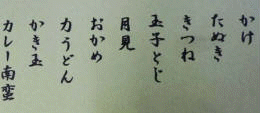 かけ
たぬき
きつね
玉子とじ
月見
おかめ
力うどん
かき玉
カレー南蛮